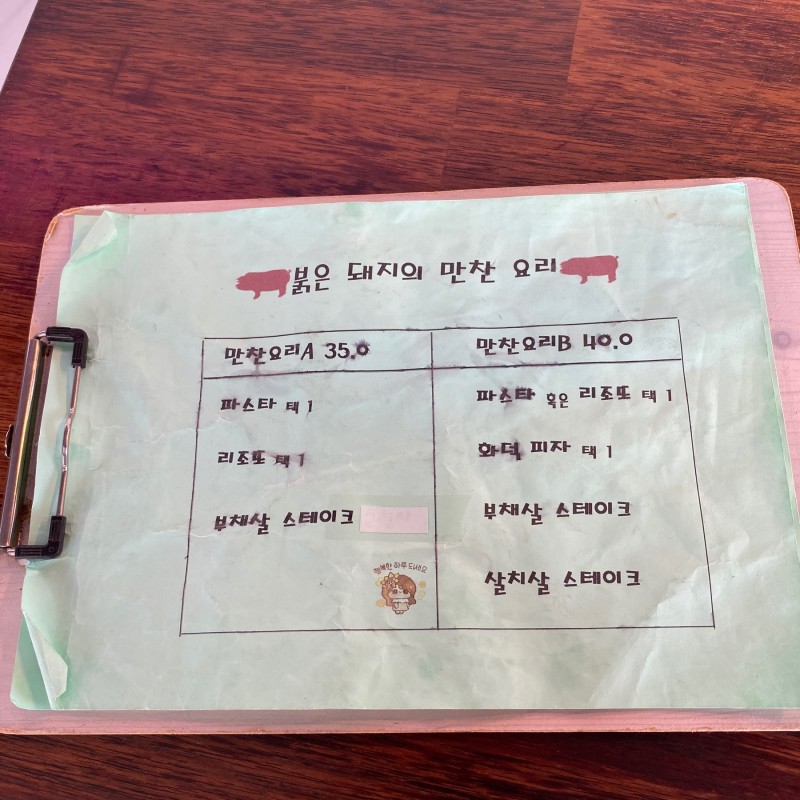 붉은 돼지의 만찬 요리
만찬요리A 35.0
파스타 택 1
리조또 택 1
부채살 스테이크
행복한 하루 되세요
만찬요리B 40.0
파스타 혹은 리조또 택 1
화덕 피자 택 1
부채살 스테이크
살치살 스테이크